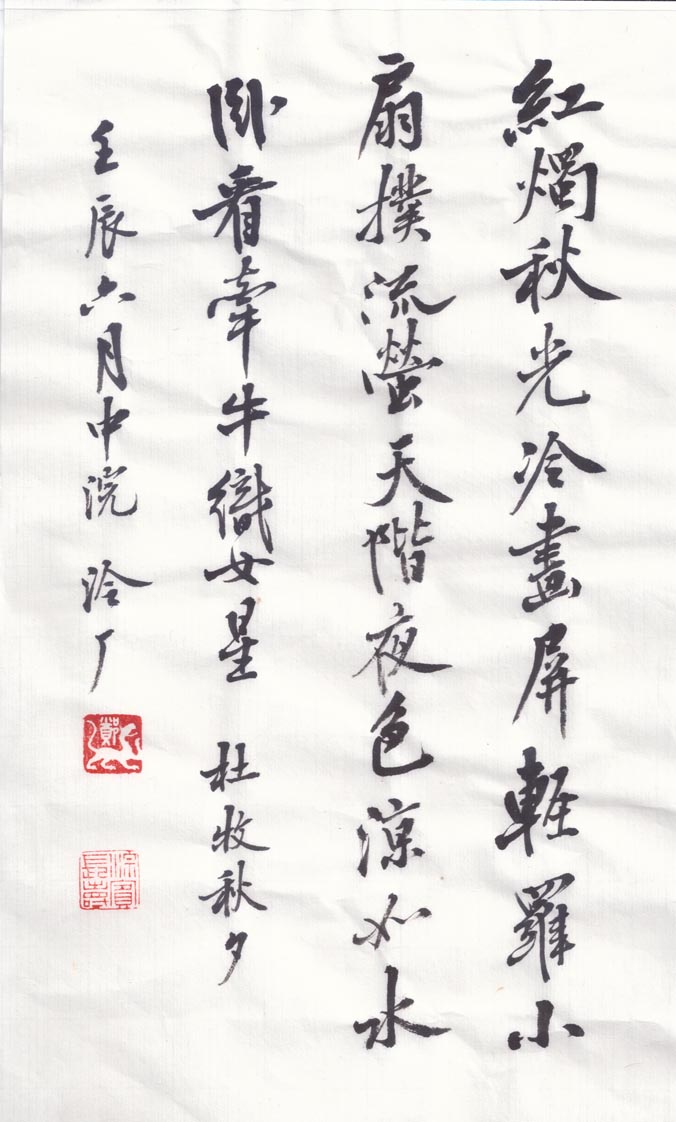 紅燭秋光冷畫屏輕羅小
扇撲流螢天階夜色涼如水
臥看牽牛織女星 杜牧秋夕
壬辰六月中浣 泠厂